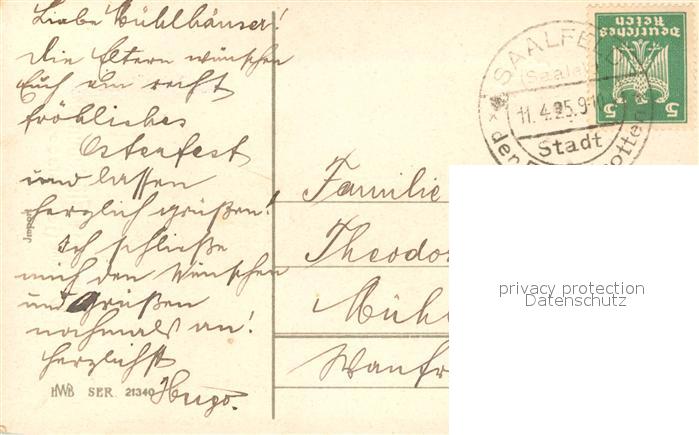 Liebe Mühlhäuser!
Die Eltern wünschen
Euch ein recht
fröhliches
Osterfest
und lassen
herzlich grüßen!
Ich schließe
mich den Wünschen
und Grüßen
nochmals an!
Herzlichst
Hugo.
Import
HWB SER. 21340
SAALFELD
(Saale)
11.4.25.9-10
Stadt
der
otten
Deutsches
Reich
5 5
Familie
Theodor
Mühl
Wanfr
privacy protection
Datenschutz